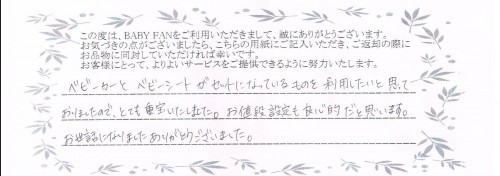 この度は、BABY FANをご利用いただきまして、誠にありがとうございます。
お気づきの点がございましたら、こちらの用紙にご記入いただき、ご返却の際に
お品物に同封していただければ幸いです。
お客様にとって、よりよいサービスをご提供できるように努力いたします。
ベビーカーと ベビーシート がセットになっているものを利用したいと思って
おりましたので、とても重宝いたしました。お値段設定も良心的だと思います。
お世話になりましたありがとうございました。